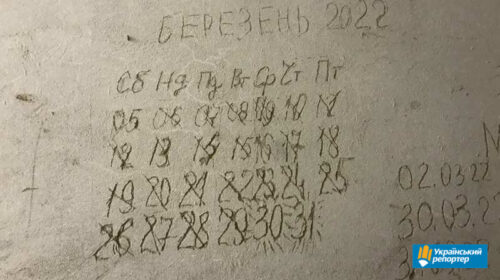 БЕРЕЗЕНЬ 2022
Сб Нд Пд Вт Ср Чт Пт
05 06 07 08 09 10 11
12 13 14 15 16 17 18
19 20 21 22 23 24 25
02.03.22
26 27 28 29 30 31
30.03.2
Український
репортер